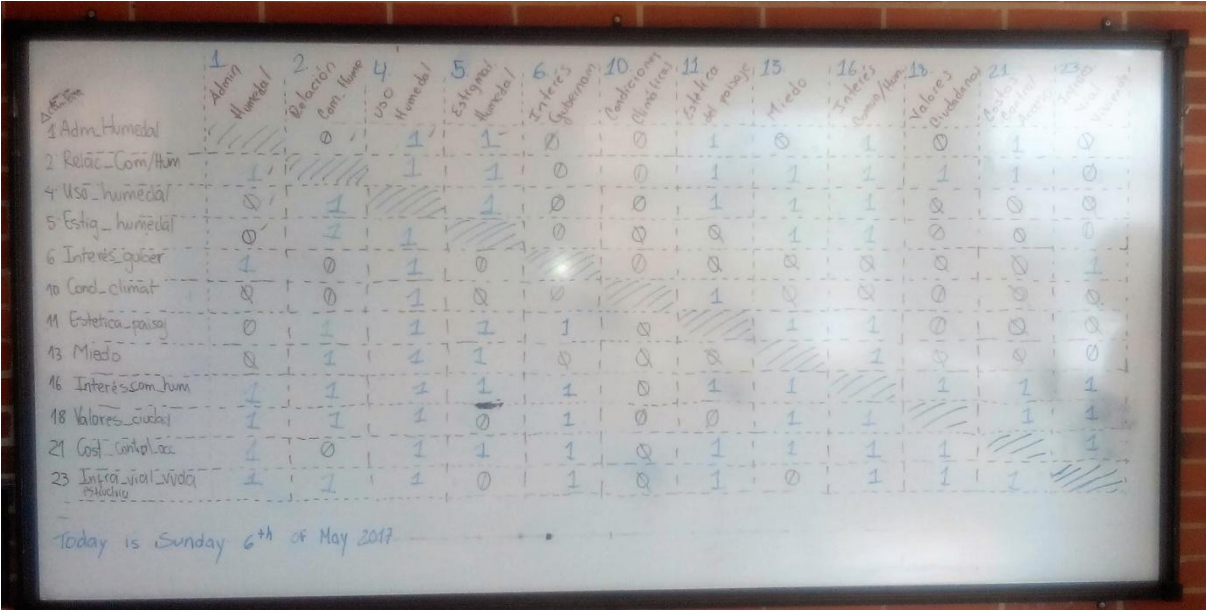 1 2 4 5 6 10 11 13 16 18 21 23
Admin Humedal Relación Com. Hume Uso Humedal Estigmat. Humedal Interés Gubernam Condiciones Climáticas Estética del paisaje Miedo Interés Comun/Hum. Valores Ciudadanos Costos Control
1 Adm_Humedal 0 1 1 0 0 1 0 1 0 1 0
2 Relac_Com/Hum 1 1 1 0 0 1 1 1 1 1 0
4 Uso_humedal 0 1 1 0 0 1 1 1 0 0 0
5 Estig_humedal 0 1 1 0 0 0 1 1 0 0 0
6 Interés_guber 1 0 1 0 0 0 0 0 0 0 1
10 Cond_climat 0 0 1 0 0 1 0 0 0 0 0
11 Estetica_paisaj 0 1 1 1 1 0 1 1 0 0 0
13 Miedo 0 1 1 1 0 0 0 1 0 0 0
16 Interéscom_hum 1 1 1 1 1 0 1 1 1 1 1
18 Valores_ciudad 1 1 1 0 1 0 0 1 1 1 1
21 Cost_Control_acc 1 0 1 1 1 0 1 1 1 1 1
23 Infra_vial_vvda 1 1 1 0 1 0 1 0 1 1 1
Today is Sunday 6th of May 2017